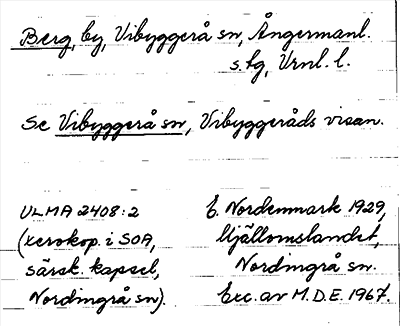 Berg, by, Vibyggerå sn, Ångermanl.
s. tg, Vrnl. l.
Se Vibyggerå sn, Vibyggeråds visan.
ULMA 2408:2
(xerokop. i SOA,
särsk. kapsel,
Nordingrå sn).
E. Nordenmark 1929,
Mjällomslandet,
Nordingrå sn.
Exc. av M.D.E. 1967.